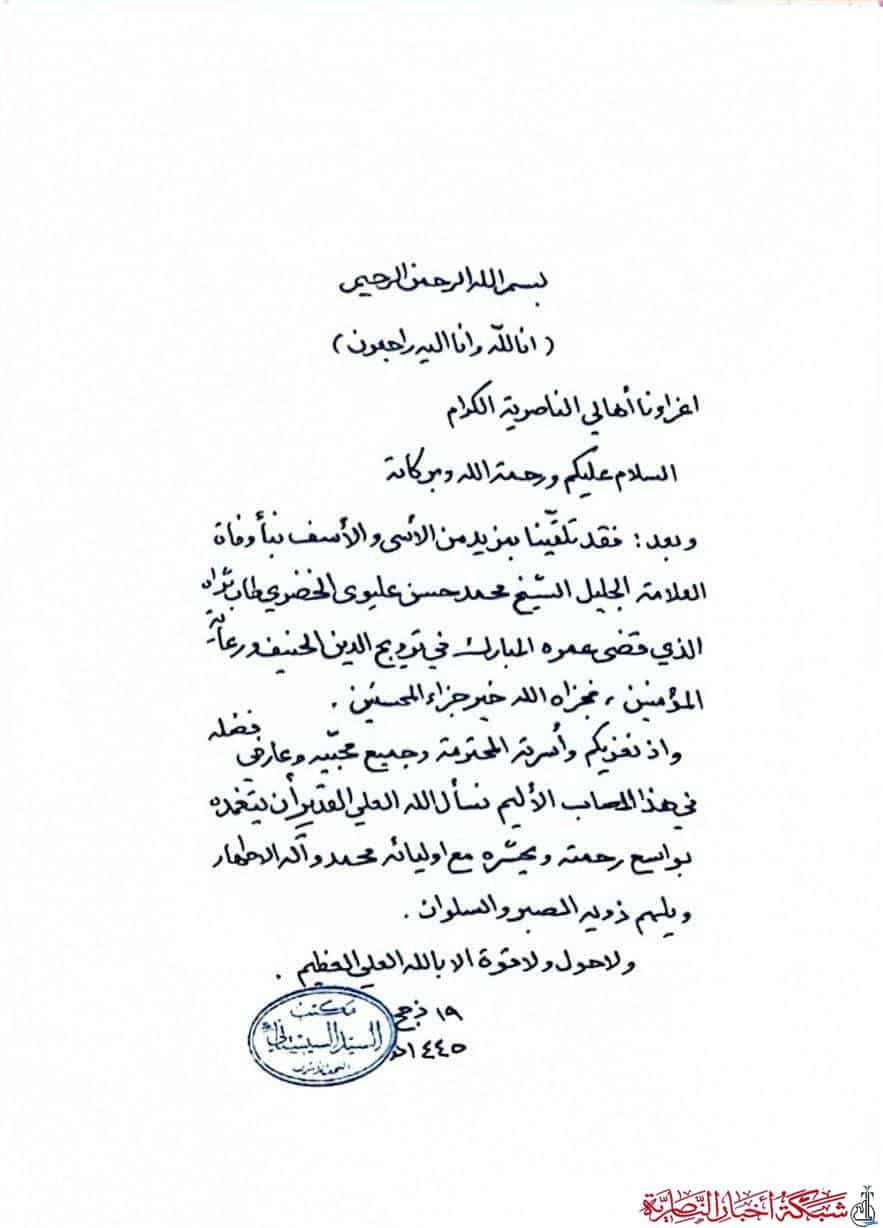 بسم الله الرحمن الرحيم
(انا لله وانا اليه راجعون)
اعزاءنا أهالي الناصرية الكرام
السلام عليكم ورحمة الله وبركاته
وبعد: فقد تلقّينا بمزيد من الأسى والأسف نبأ وفاة
العلامة الجليل الشيخ محمد حسن عليوي الخضري طاب ثراه
الذي قضى عمره المبارك في ترويج الدين الحنيف ورعاية
المؤمنين، فجزاه الله خير جزاء المحسنين.
واذ نعزيكم وأسرته المحترمة وجميع محبّيه وعارفي فضله
في هذا المصاب الأليم نسأل الله العلي القدير أن يتغمده
بواسع رحمته ويحشره مع اوليائه محمد وآله الاطهار
ويلهم ذويه الصبر والسلوان.
ولا حول ولا قوة الا بالله العلي العظيم.
١٩ ذ حج
١٤٤٥هـ
مكتب
السيد السيستاني
النجف الأشرف
شبكة أخبار الناصرية